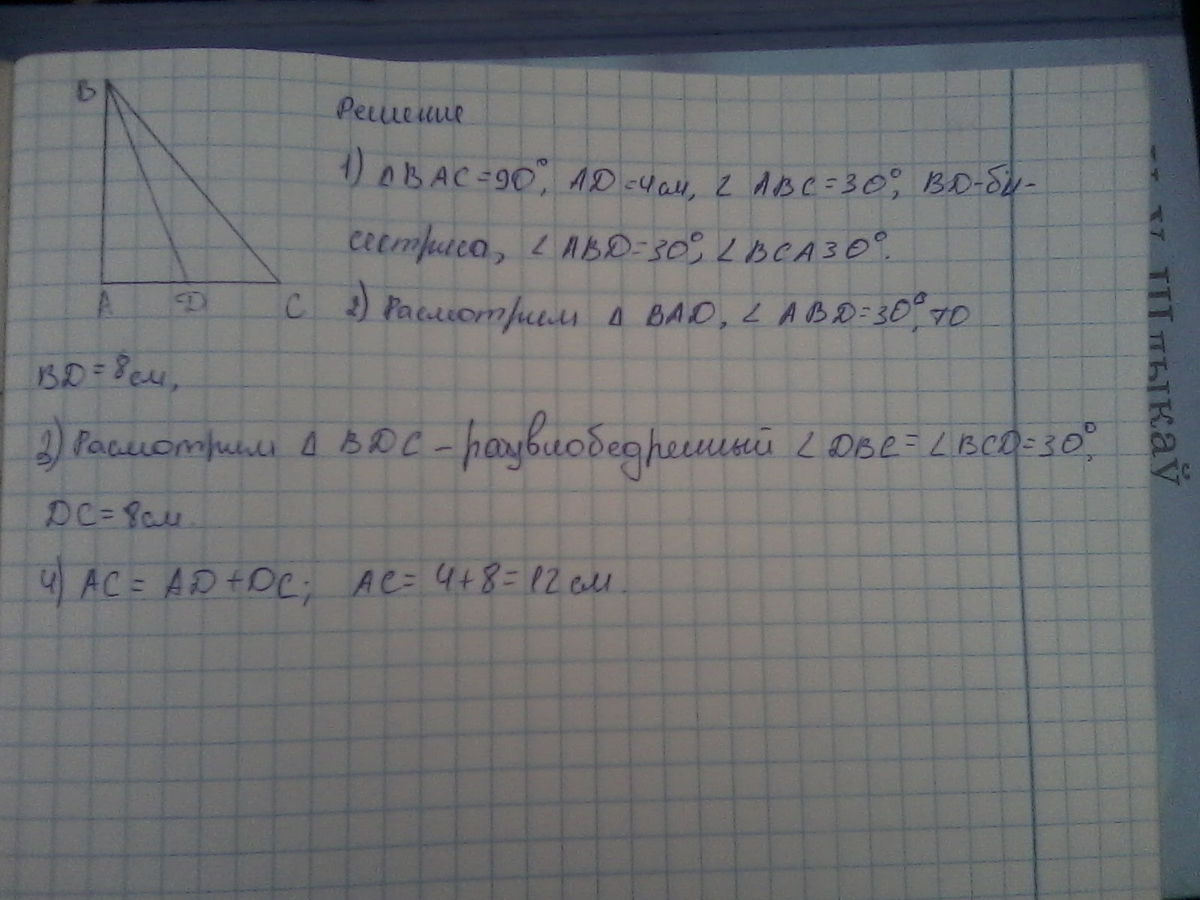 B
A D C
Решение
1) △ BAC=90°, AD=4см, ∠ ABC=30°, BD-би-
сестриса, ∠ ABD=30°, ∠ BCA 30°.
2) Расмотрим △ BAD, ∠ ABD=30°, то
BD=8см,
3) Расмотрим △ BDC – равнобедренный ∠ DBC=∠BCD=30°,
DC=8см.
4) AC= AD+DC; AC= 4+8=12 см.